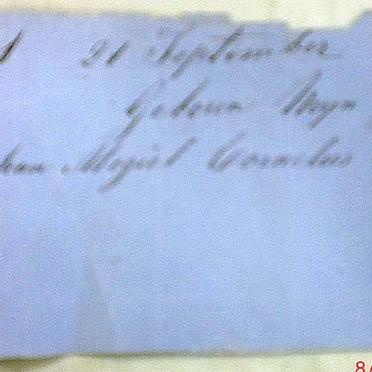 21 September
Geboren Mijn
han Megiel Cornelus
8/